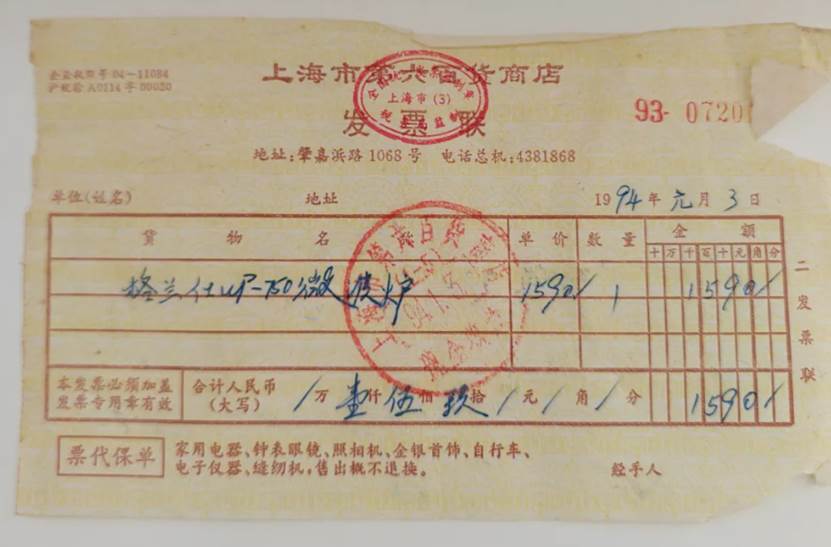 企业执照号04—11084
沪税验A0114字00020
上海市第六百货商店
上海市(3)
发票联
93-0720
地址:肇嘉浜路1068号 电话总机:4381868
单位(姓名) 地址 1994年元月3日
货物名 单价 数量 金额
十万千百十元角分
格兰仕WP-750微波炉 1590/ 1 1590/
二发票联
本发票必须加盖
发票专用章有效
合计人民币
(大写)
/万壹仟伍佰玖拾/元/角/分 1590/
票代保单
家用电器、钟表眼镜、照相机、金银首饰、自行车、
电子仪器、缝纫机,售出概不退换。
经手人